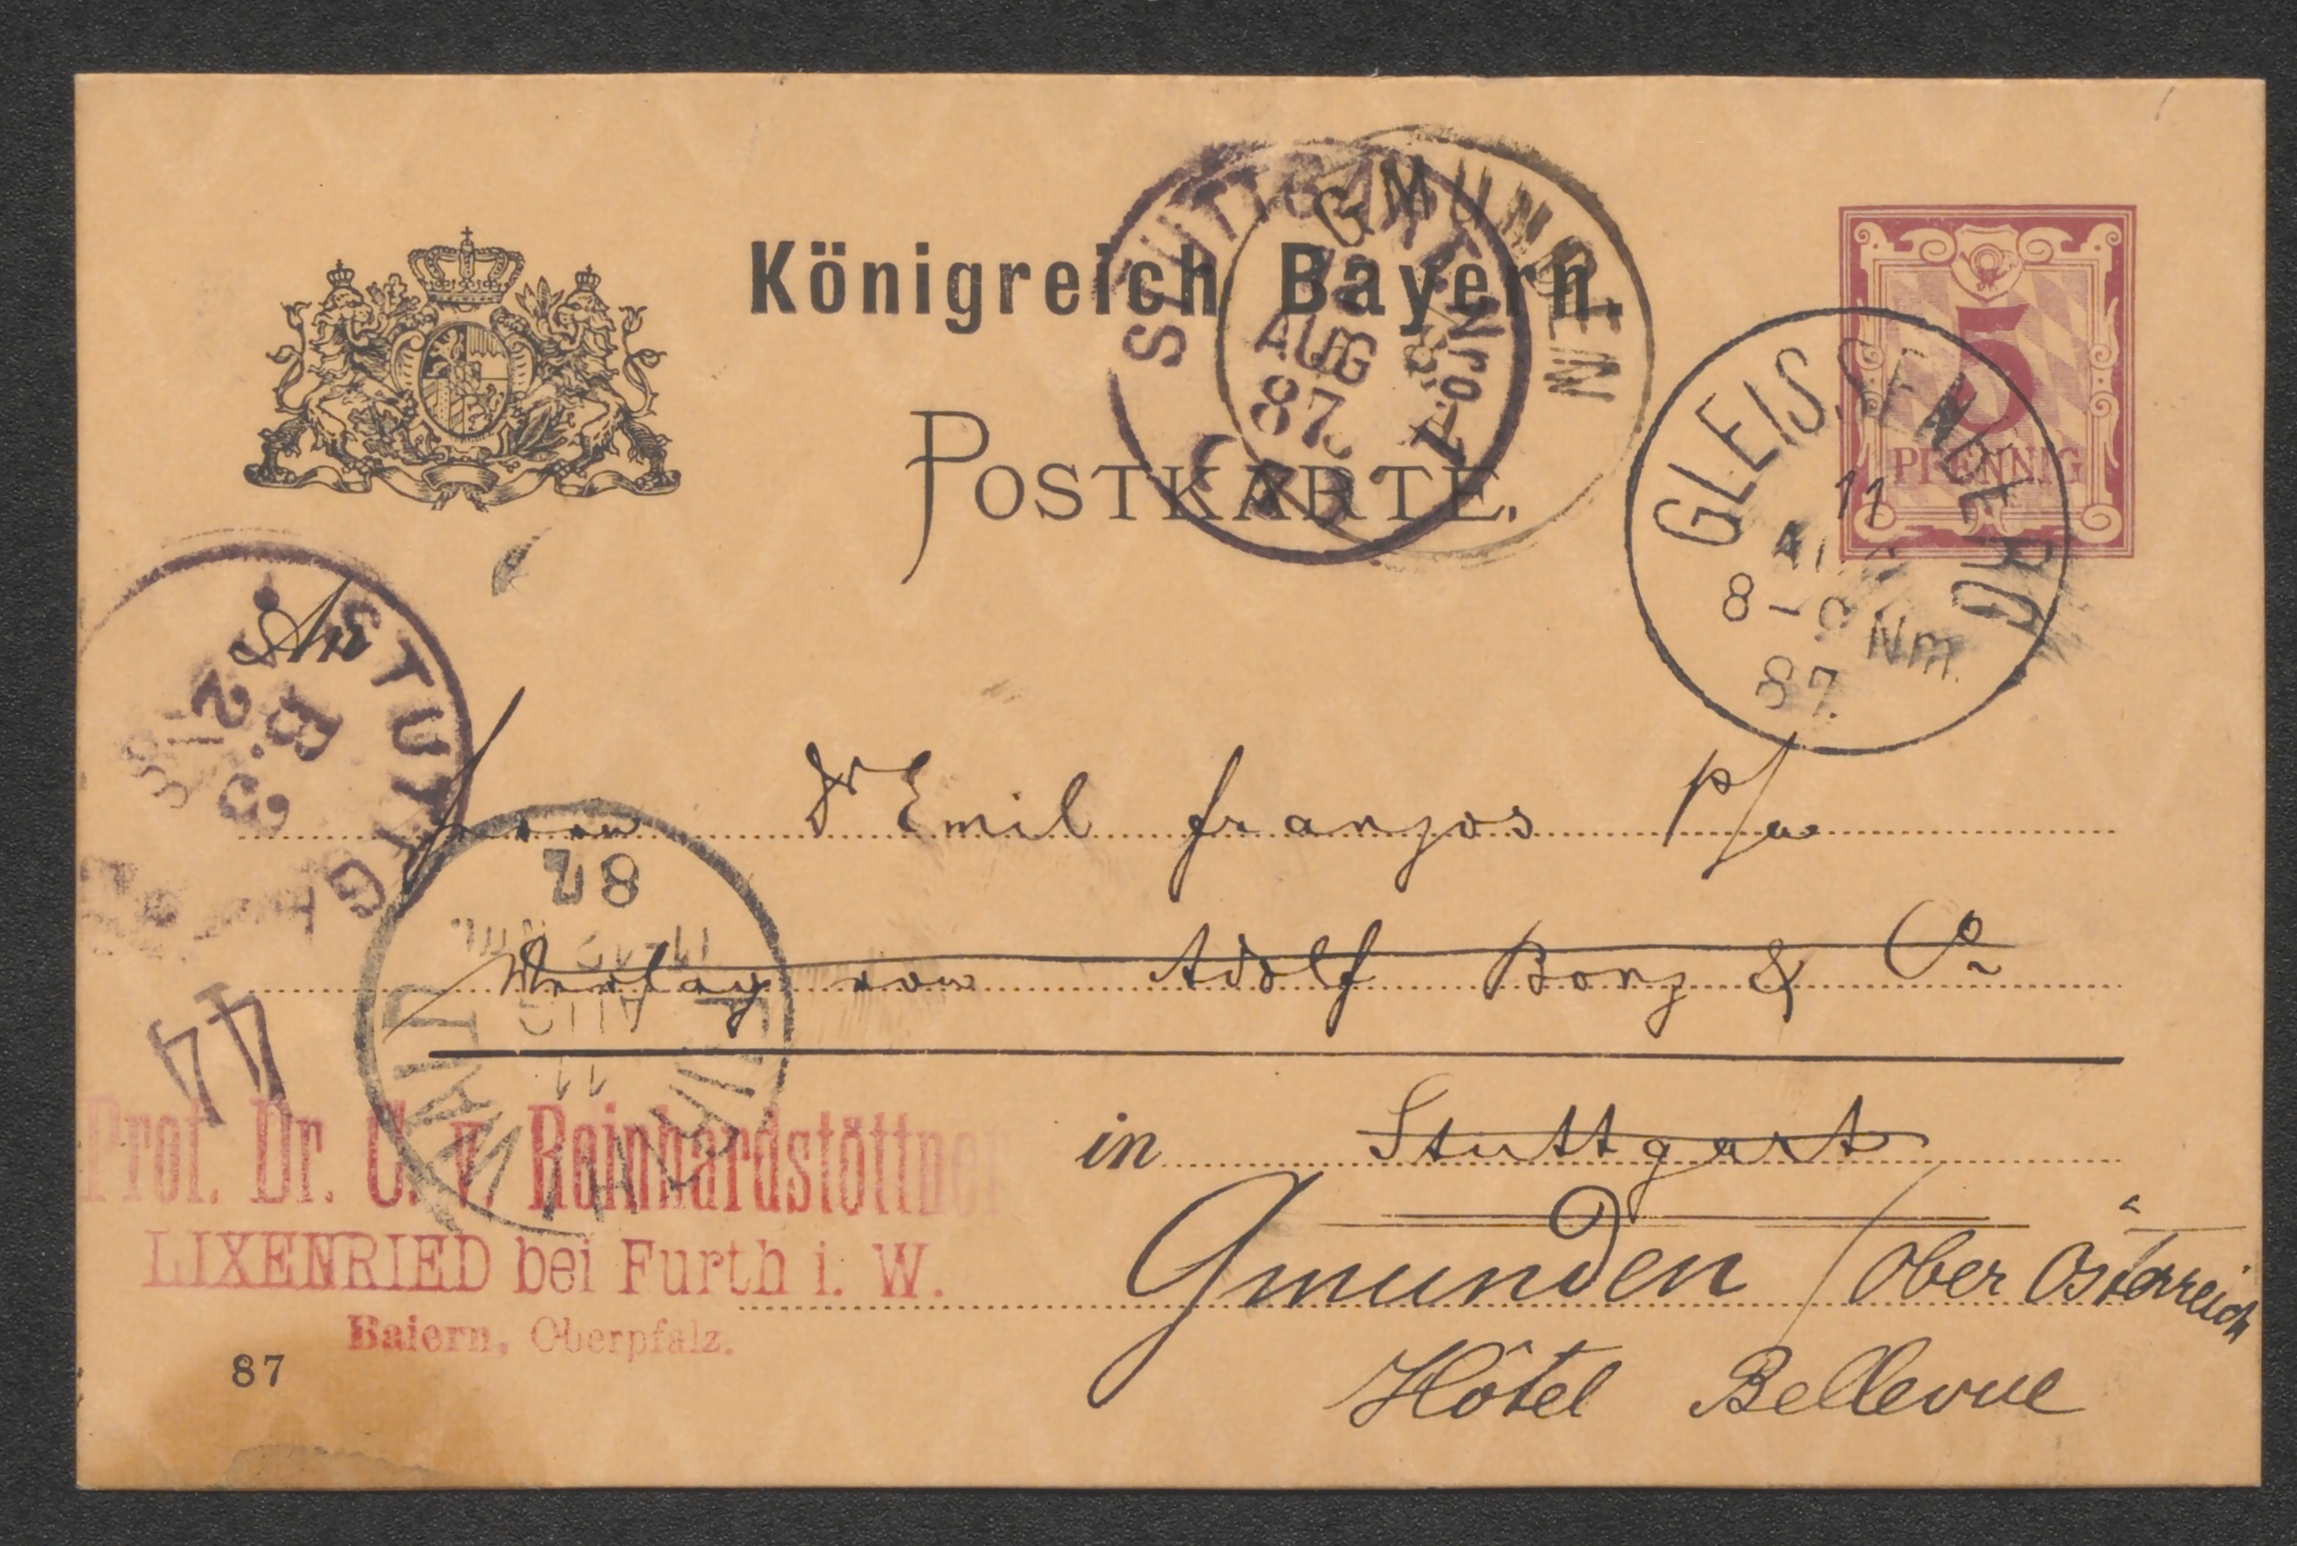 Königreich Bayern.
POSTKARTE.
5
PFENNIG
STUTTGART. No 1
AUG
87.
GMUNDEN
GLEISSENBERG
11
8-9 Nm.
87.
STUTTG
B.
An
Herrn Dr Emil Franzos p/a
Verlag von Adolf Bonz & Co
in Stuttgart
Gmunden / Ober Österreich
Hôtel Bellevue
WALDMÜNCHEN
11
AUG
87
44
Prof. Dr. C. v. Reinhardstöttner
LIXENRIED bei Furth i. W.
Baiern, Oberpfalz.
87